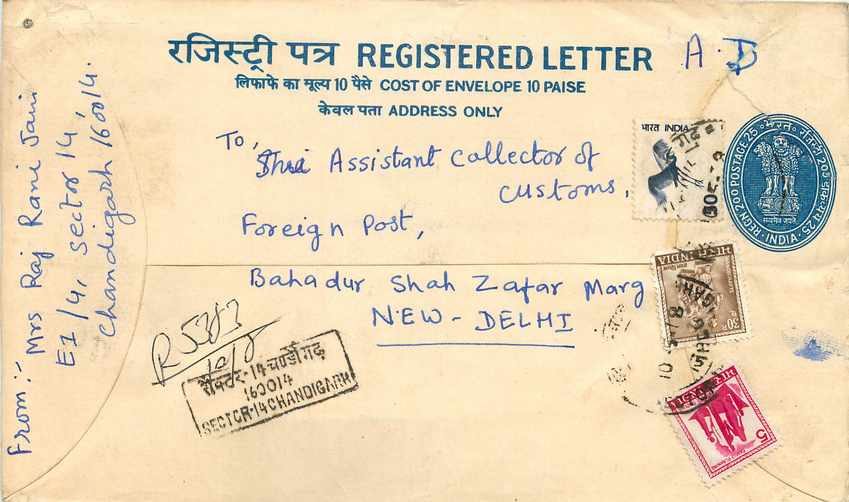 रजिस्ट्री पत्र REGISTERED LETTER A.D
लिफाफे का मूल्य 10 पैसे COST OF ENVELOPE 10 PAISE
केवल पता ADDRESS ONLY
To,
Assistant Collector of
Customs,
Foreign Post,
Bahadur Shah Zafar Marg
NEW-DELHI
From:- Mrs Raj Rani Jain
E1/4, Sector 14,
Chandigarh 160014.
भारत INDIA
REGN 200 POSTAGE 25
INDIA
30
5
R 5383
सैक्टर-14 चण्डीगढ़
160014
SECTOR-14 CHANDIGARH